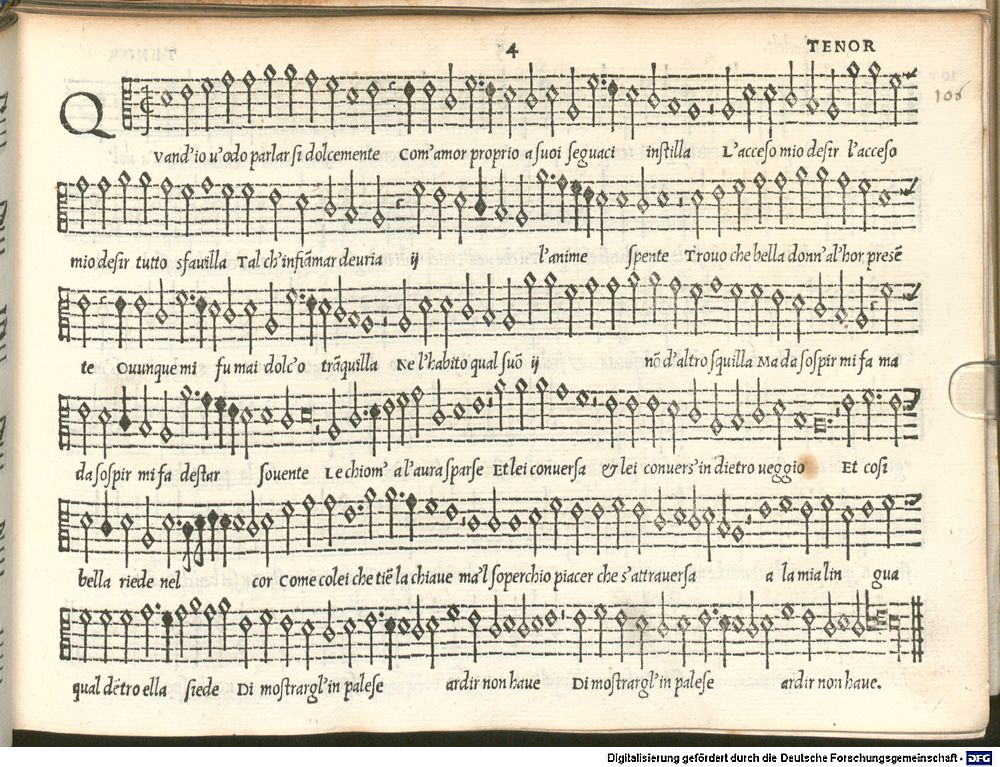 4
TENOR
106
Q
Vand'io v'odo parlar si dolcemente Com'amor proprio a suoi seguaci instilla L'acceso mio desir l'acceso
mio desir tutto sfauilla Tal ch'infiãmar deuria ij l'anime spente Trouo che bella donn'al'hor presẽ
te Ouunque mi fu mai dolc'o trãquilla Ne l'habito qual suõ ij nõ d'altro squilla Ma da sospir mi fa ma
da sospir mi fa destar souente Le chiom' a l'aura sparse Et lei conuersa & lei conuers'in dietro ueggio Et cosi
bella riede nel cor Come colei che tiẽ la chiaue ma'l soperchio piacer che s'attrauersa a la mia lin gua
qual dẽtro ella siede Di mostrargl'in palese ardir non haue Di mostrargl'in palese ardir non haue.
Digitalisierung gefördert durch die Deutsche Forschungsgemeinschaft - DFG